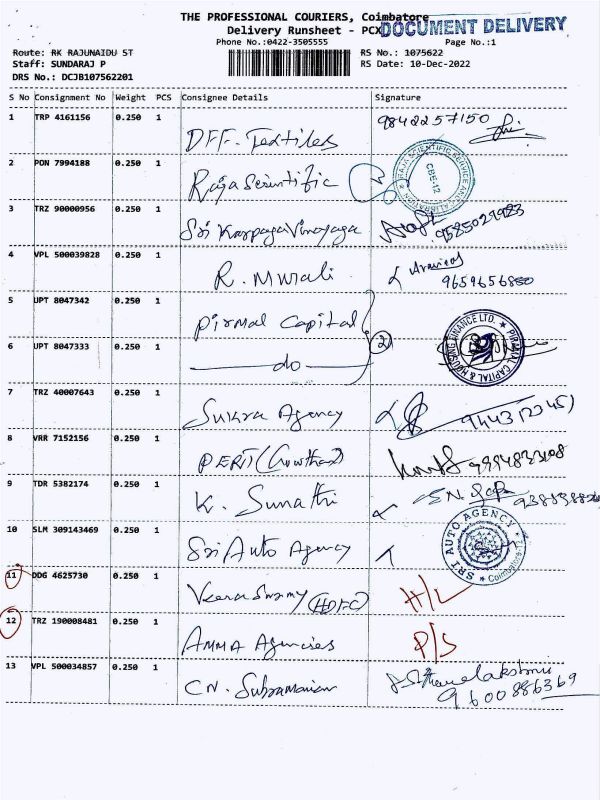 THE PROFESSIONAL COURIERS, Coimbatore
DOCUMENT DELIVERY
Delivery Runsheet - PCX
Phone No.:0422-3505555 Page No.:1
Route: RK RAJUNAIDU ST RS No.: 1075622
Staff: SUNDARAJ P RS Date: 10-Dec-2022
DRS No.: DCJB107562201
S No Consignment No Weight PCS Consignee Details Signature
1 TRP 4161156 0.250 1 DFF. Textiles 9842257150
2 PON 7994188 0.250 1 Raja Scientific RAJA SCIENTIFIC SERVICE AND CALIBRATION CBE-12
3 TRZ 90000956 0.250 1 Sri Karpaga Vinayaga 9585029983
4 VPL 500039828 0.250 1 R. Murali Aravind 9659656850
5 UPT 8047342 0.250 1 Pirmal Capital
6 UPT 8047333 0.250 1 do 2 PIRAMAL CAPITAL & HOUSING FINANCE LTD.
7 TRZ 40007643 0.250 1 Sukra Agency
8 VRR 7152156 0.250 1 PERIT
9 TDR 5382174 0.250 1 K. Sumathi
10 SLM 309143469 0.250 1 Sri Auto Agency SRI AUTO AGENCY Coimbatore-12
11 DDG 4625730 0.250 1 Veera Swamy (HDFC) H/L
12 TRZ 190008481 0.250 1 AMMA Agencies P/S
13 VPL 500034857 0.250 1 CN. Subramanian 9600886369